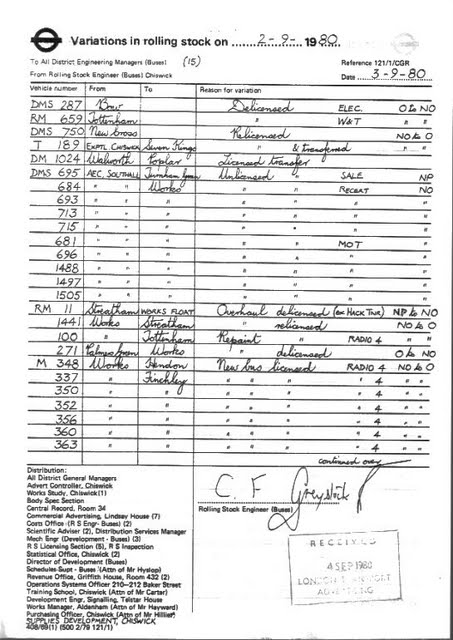 Variations in rolling stock on 2-9- 1980
To All District Engineering Managers (Buses) (15) Reference 121/1/CGR
From Rolling Stock Engineer (Buses) Chiswick Date 3-9-80
Vehicle number From To Reason for variation
DMS 287 Bow Delicensed ELEC. O to NO
RM 659 Tottenham " W&T " "
DMS 750 New Cross Relicensed NO to O
T 189 EXPTL CHISWICK Seven Kings " & transferred "
DM 1024 Walworth Poplar Licensed transfer
DMS 695 AEC, SOUTHALL Turnham Green Unlicensed " SALE NP
684 " " Works " RECERT NO
693 " " " " " "
713 " " " " " "
715 " " " " " "
681 " " " " MOT "
696 " " " " " "
1488 " " " " " "
1497 " " " " " "
1505 " " " " " "
RM 11 Streatham WORKS FLOAT Overhaul delicensed (ex HACK TWR) NP to NO
1441 Works Streatham " relicensed NO to O
100 " Tottenham Repaint " RADIO 4 " "
271 Palmers Green Works " delicensed O to NO
M 348 Works Hendon New bus licensed RADIO 4 NO to O
337 " Finchley " " " " 4 " "
350 " " " " " " 4 " "
352 " " " " " " 4 " "
356 " " " " " " 4 " "
360 " " " " " " 4 " "
363 " " " " " " 4 " "
continued over
Distribution:
All District General Managers
Advert Controller, Chiswick
Works Study, Chiswick (1)
Body Spec Section
Central Record, Room 34
Commercial Advertising, Lindsay House (7)
Costs Office (R S Engr- Buses) (2)
Scientific Adviser (2), Distribution Services Manager
Mech Engr (Development - Buses) (3)
R S Licensing Section (5), R S Inspection
Statistical Office, Chiswick (2)
Director of Development (Buses)
Schedules Supt - Buses (Attn of Mr Hyslop)
Revenue Office, Griffith House, Room 432 (2)
Operations Systems Officer 210-212 Baker Street
Training School, Chiswick (Attn of Mr Carter)
Development Engr, Signalling, Telstar House
Works Manager, Aldenham (Attn of Mr Hayward)
Purchasing Officer, Chiswick (Attn of Mr Hillier)
SUPPLIES DEVELOPMENT, CHISWICK
408/69(1) (500 2/79 121/1)
C. F Greystock
Rolling Stock Engineer (Buses)
RECEIVED
4 SEP 1980
LONDON TRANSPORT
ADVERTISING